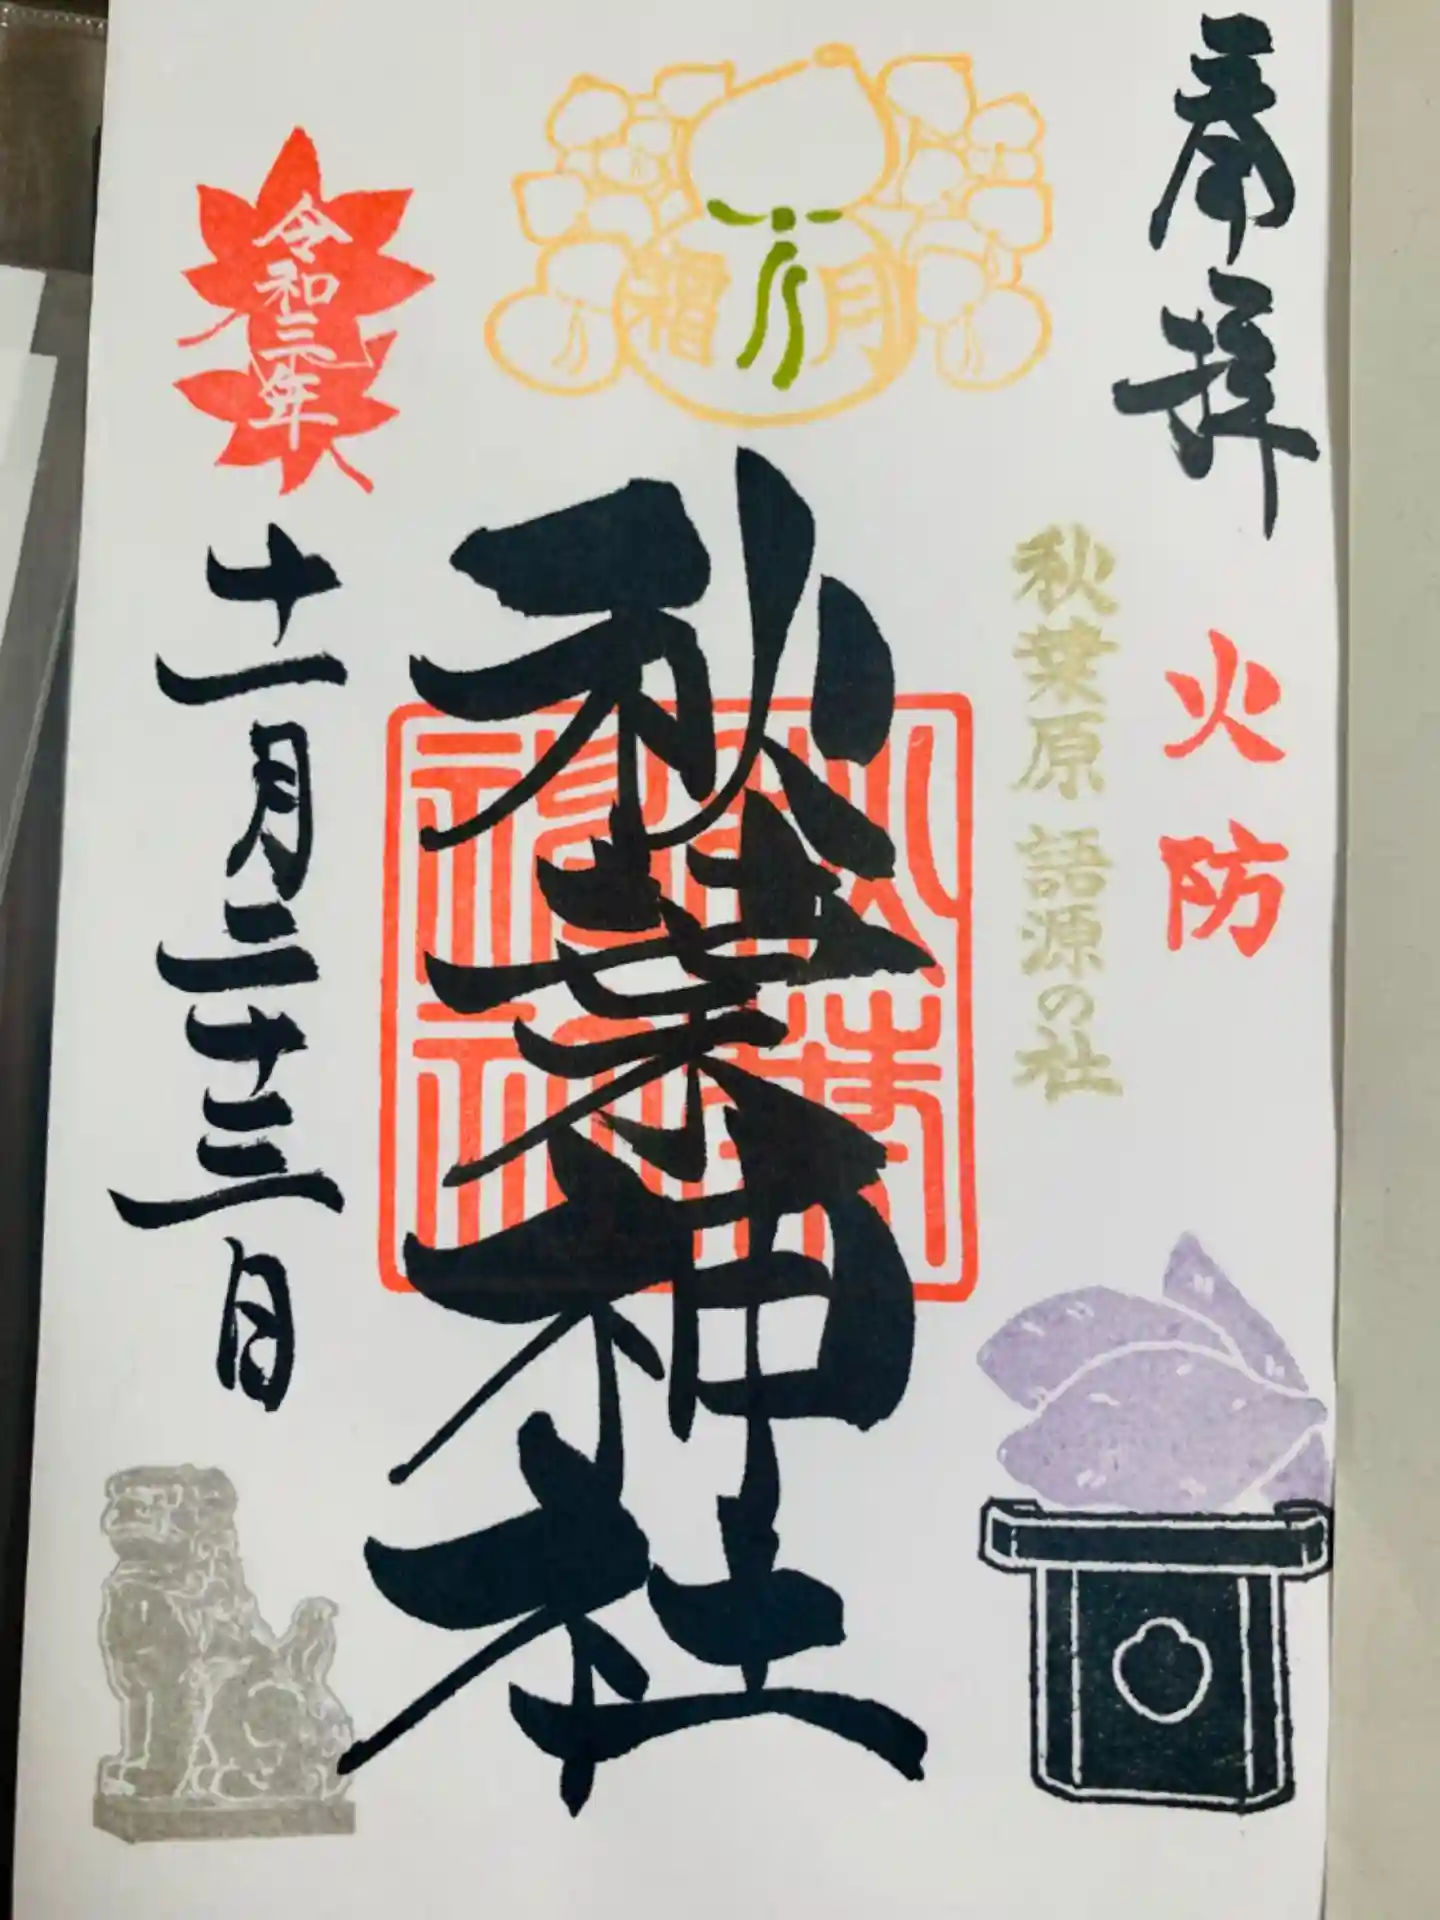 奉拝
火防
秋葉原 語源の社
霜月
秋葉神社
秋葉神社
令和三年
十一月二十三日